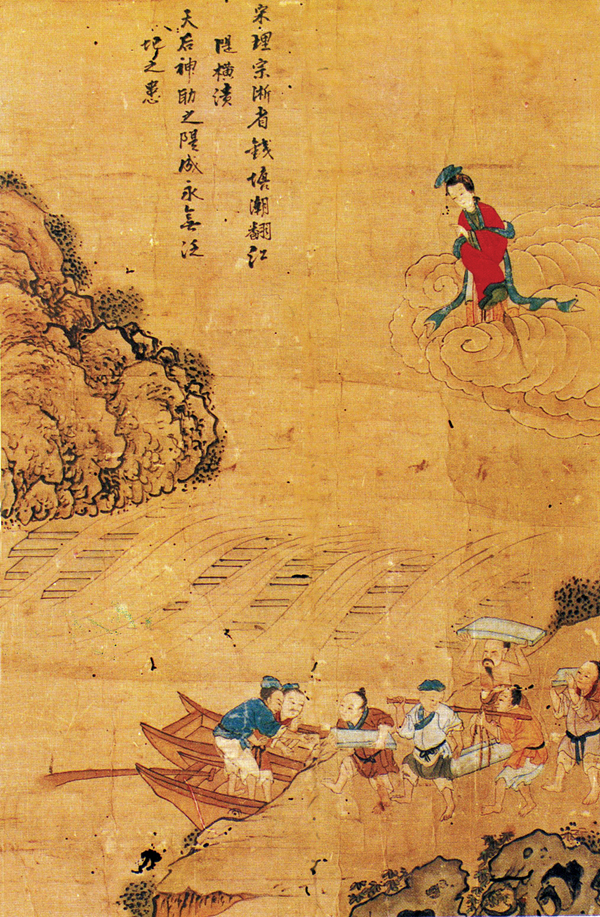 宋理宗浙省錢塘潮翻江
隄橫潰
天后神助之隄成永無泛
圮之患